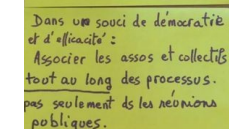 Dans un souci de démocratie
et d'efficacité :
Associer les assos et collectifs
tout au long des processus.
pas seulement ds les réunions
publiques.